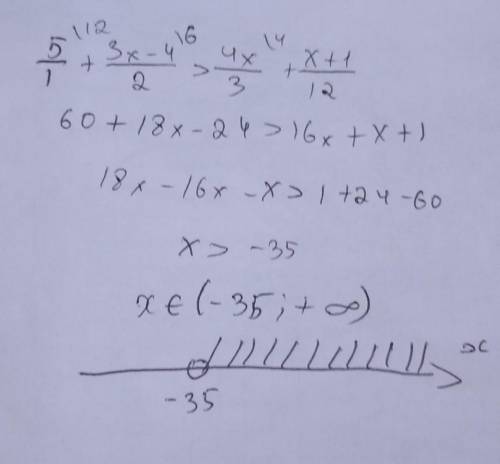 5/1 \12 + (3x-4)/2 \6 > 4x/3 \4 + (x+1)/12
60+18x-24>16x+x+1
18x-16x-x>1+24-60
x>-35
x∈(-35;+∞)
x
-35